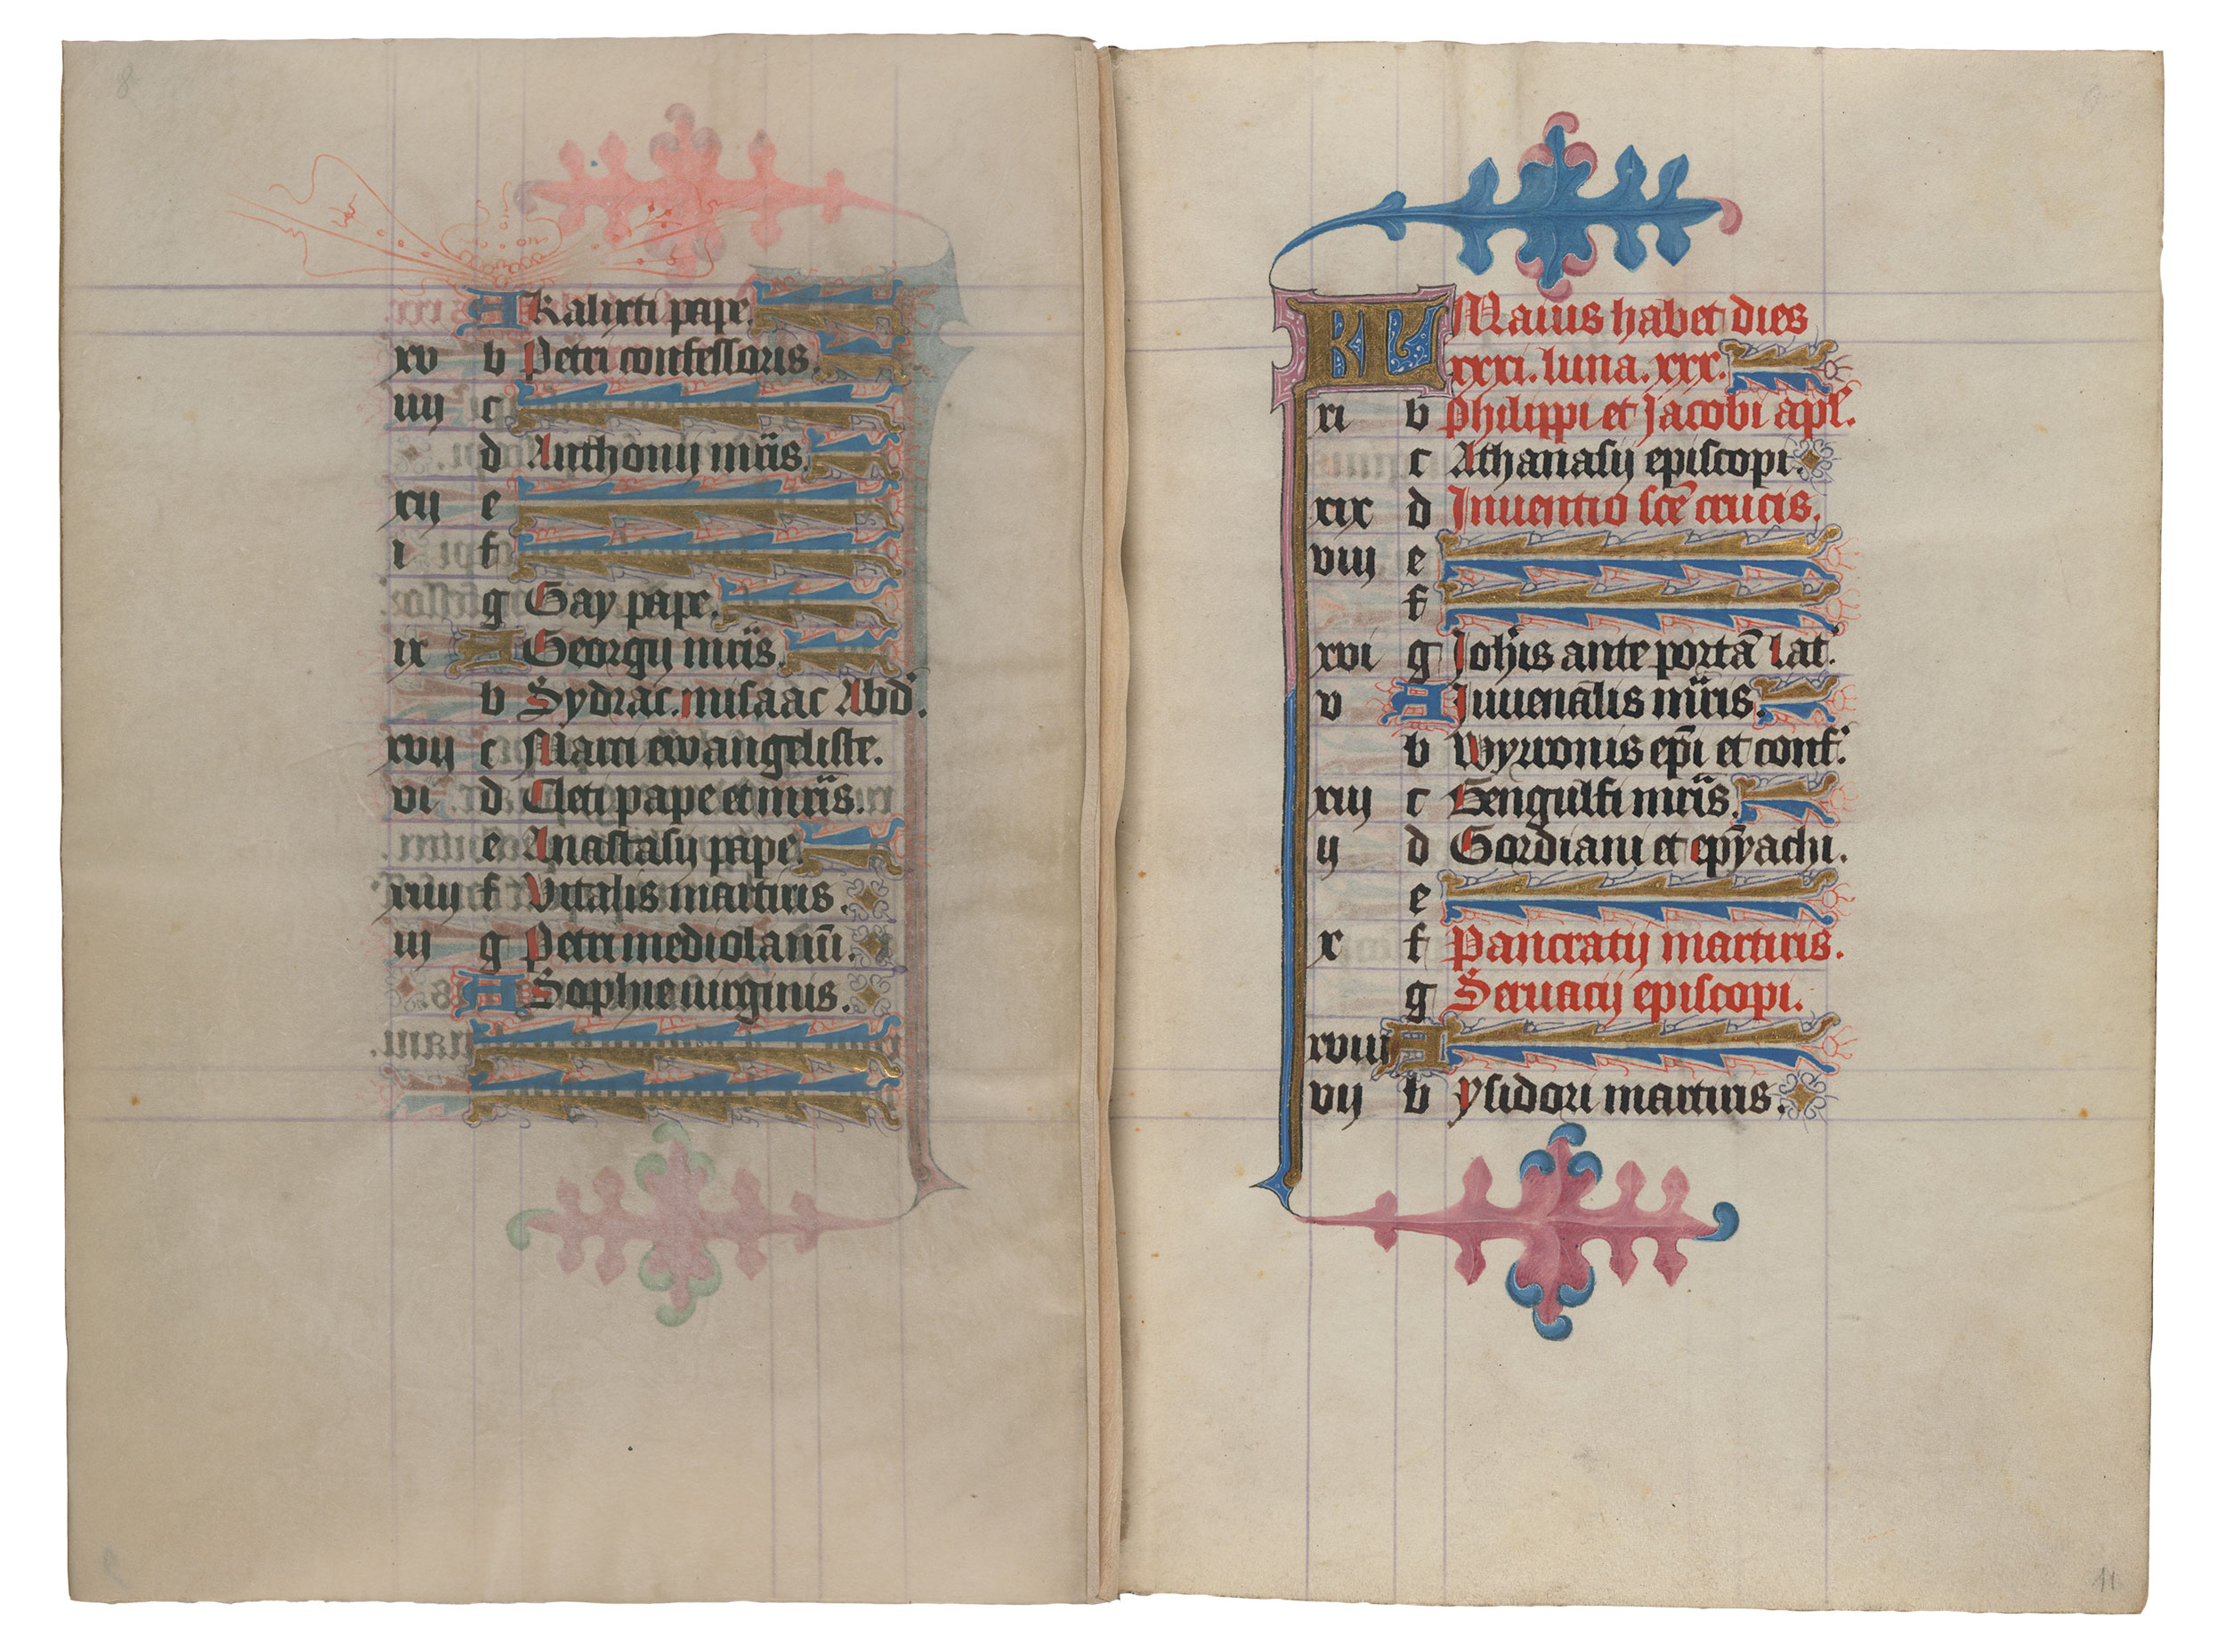 8
A Kalixti pape.
xv b Petri confessoris.
iiij c
d Anthonij mr̄is.
xij e
i f
g Gay pape.
ix A Georgij mr̄is.
b Sydrac. misaac Abd'.
xvij c Marci ewangeliste.
vi d Cleti pape et mr̄is.
e Anastasij pape
xiiij f Vitalis martiris.
iij g Petri mediolanēn̄.
A Sophie uirginis.
KL Maius habet dies
xxxi. luna. xxx.
xi b Philippi et Jacobi apl'.
c Athanasij episcopi.
xix d Inuentio sc̄e crucis.
viij e
f
xvi g Joh̄is ante portā lat'.
v A Iuuenalis mr̄is.
b Wyronis ep̄i et conf'.
xiij c Gengulfi mr̄is.
ij d Gordiani et epȳachi.
e
x f Pancratij martiris.
g Seruacij episcopi.
xviij A
vij b Ysidori martiris.
11